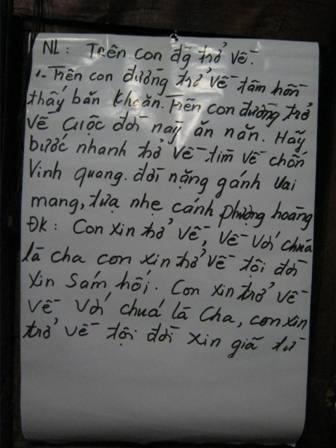 NL: Trên con đg trở về.
1. Trên con đường trở về tâm hồn
thấy băn khoăn. Trên con đường trở
về cuộc đời nay ăn năn. Hãy
bước nhanh trở về tìm về chốn
Vinh quang. đời nặng gánh vai
mang, tựa nhẹ cánh phượng hoàng
ĐK: Con xin trở về, về với chúa
là cha con xin trở về tội đời
xin sám hối. Con xin trở về
về với chúa là Cha, con xin
trở về tội đời xin giã từ